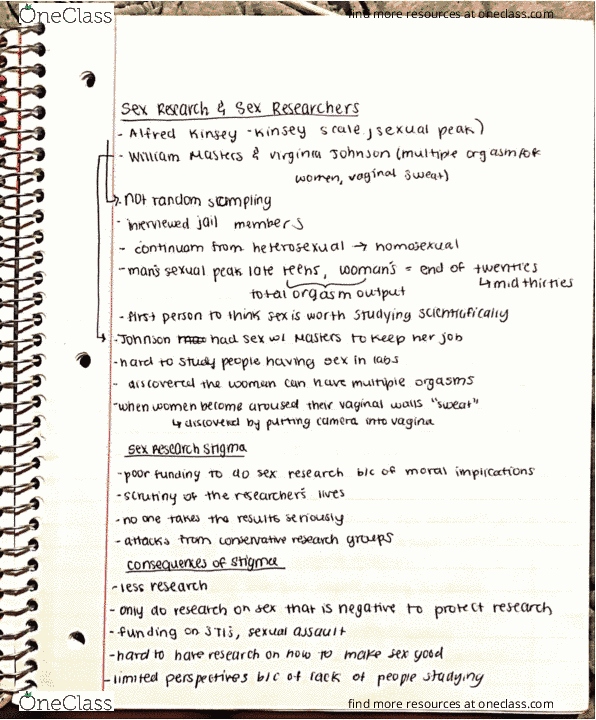 OneClass
find more resources at oneclass.com
Sex Research & Sex Researchers
- Alfred Kinsey - Kinsey scale, sexual peak)
- William Masters & Virginia Johnson (multiple orgasm for
women, vaginal sweat)
- not random sampling
- interviewed jail members
- continuum from heterosexual → homosexual
- man's sexual peak late teens, woman's = end of twenties
↳ mid thirties
total orgasm output
- first person to think sex is worth studying scientifically
- Johnson had sex w/ Masters to keep her job
- hard to study people having sex in labs
- discovered the woman can have multiple orgasms
- when women become aroused their vaginal walls "sweat"
↳ discovered by putting camera into vagina
Sex Research Stigma
- poor funding to do sex research b/c of moral implications
- scrutiny of the researchers lives
- no one takes the results seriously
- attacks from conservative research groups
Consequences of Stigma
- less research
- only do research on sex that is negative to protect research
- funding on STIs, sexual assault
- hard to have research on how to make sex good
- limited perspectives b/c of lack of people studying
OneClass
find more resources at oneclass.com